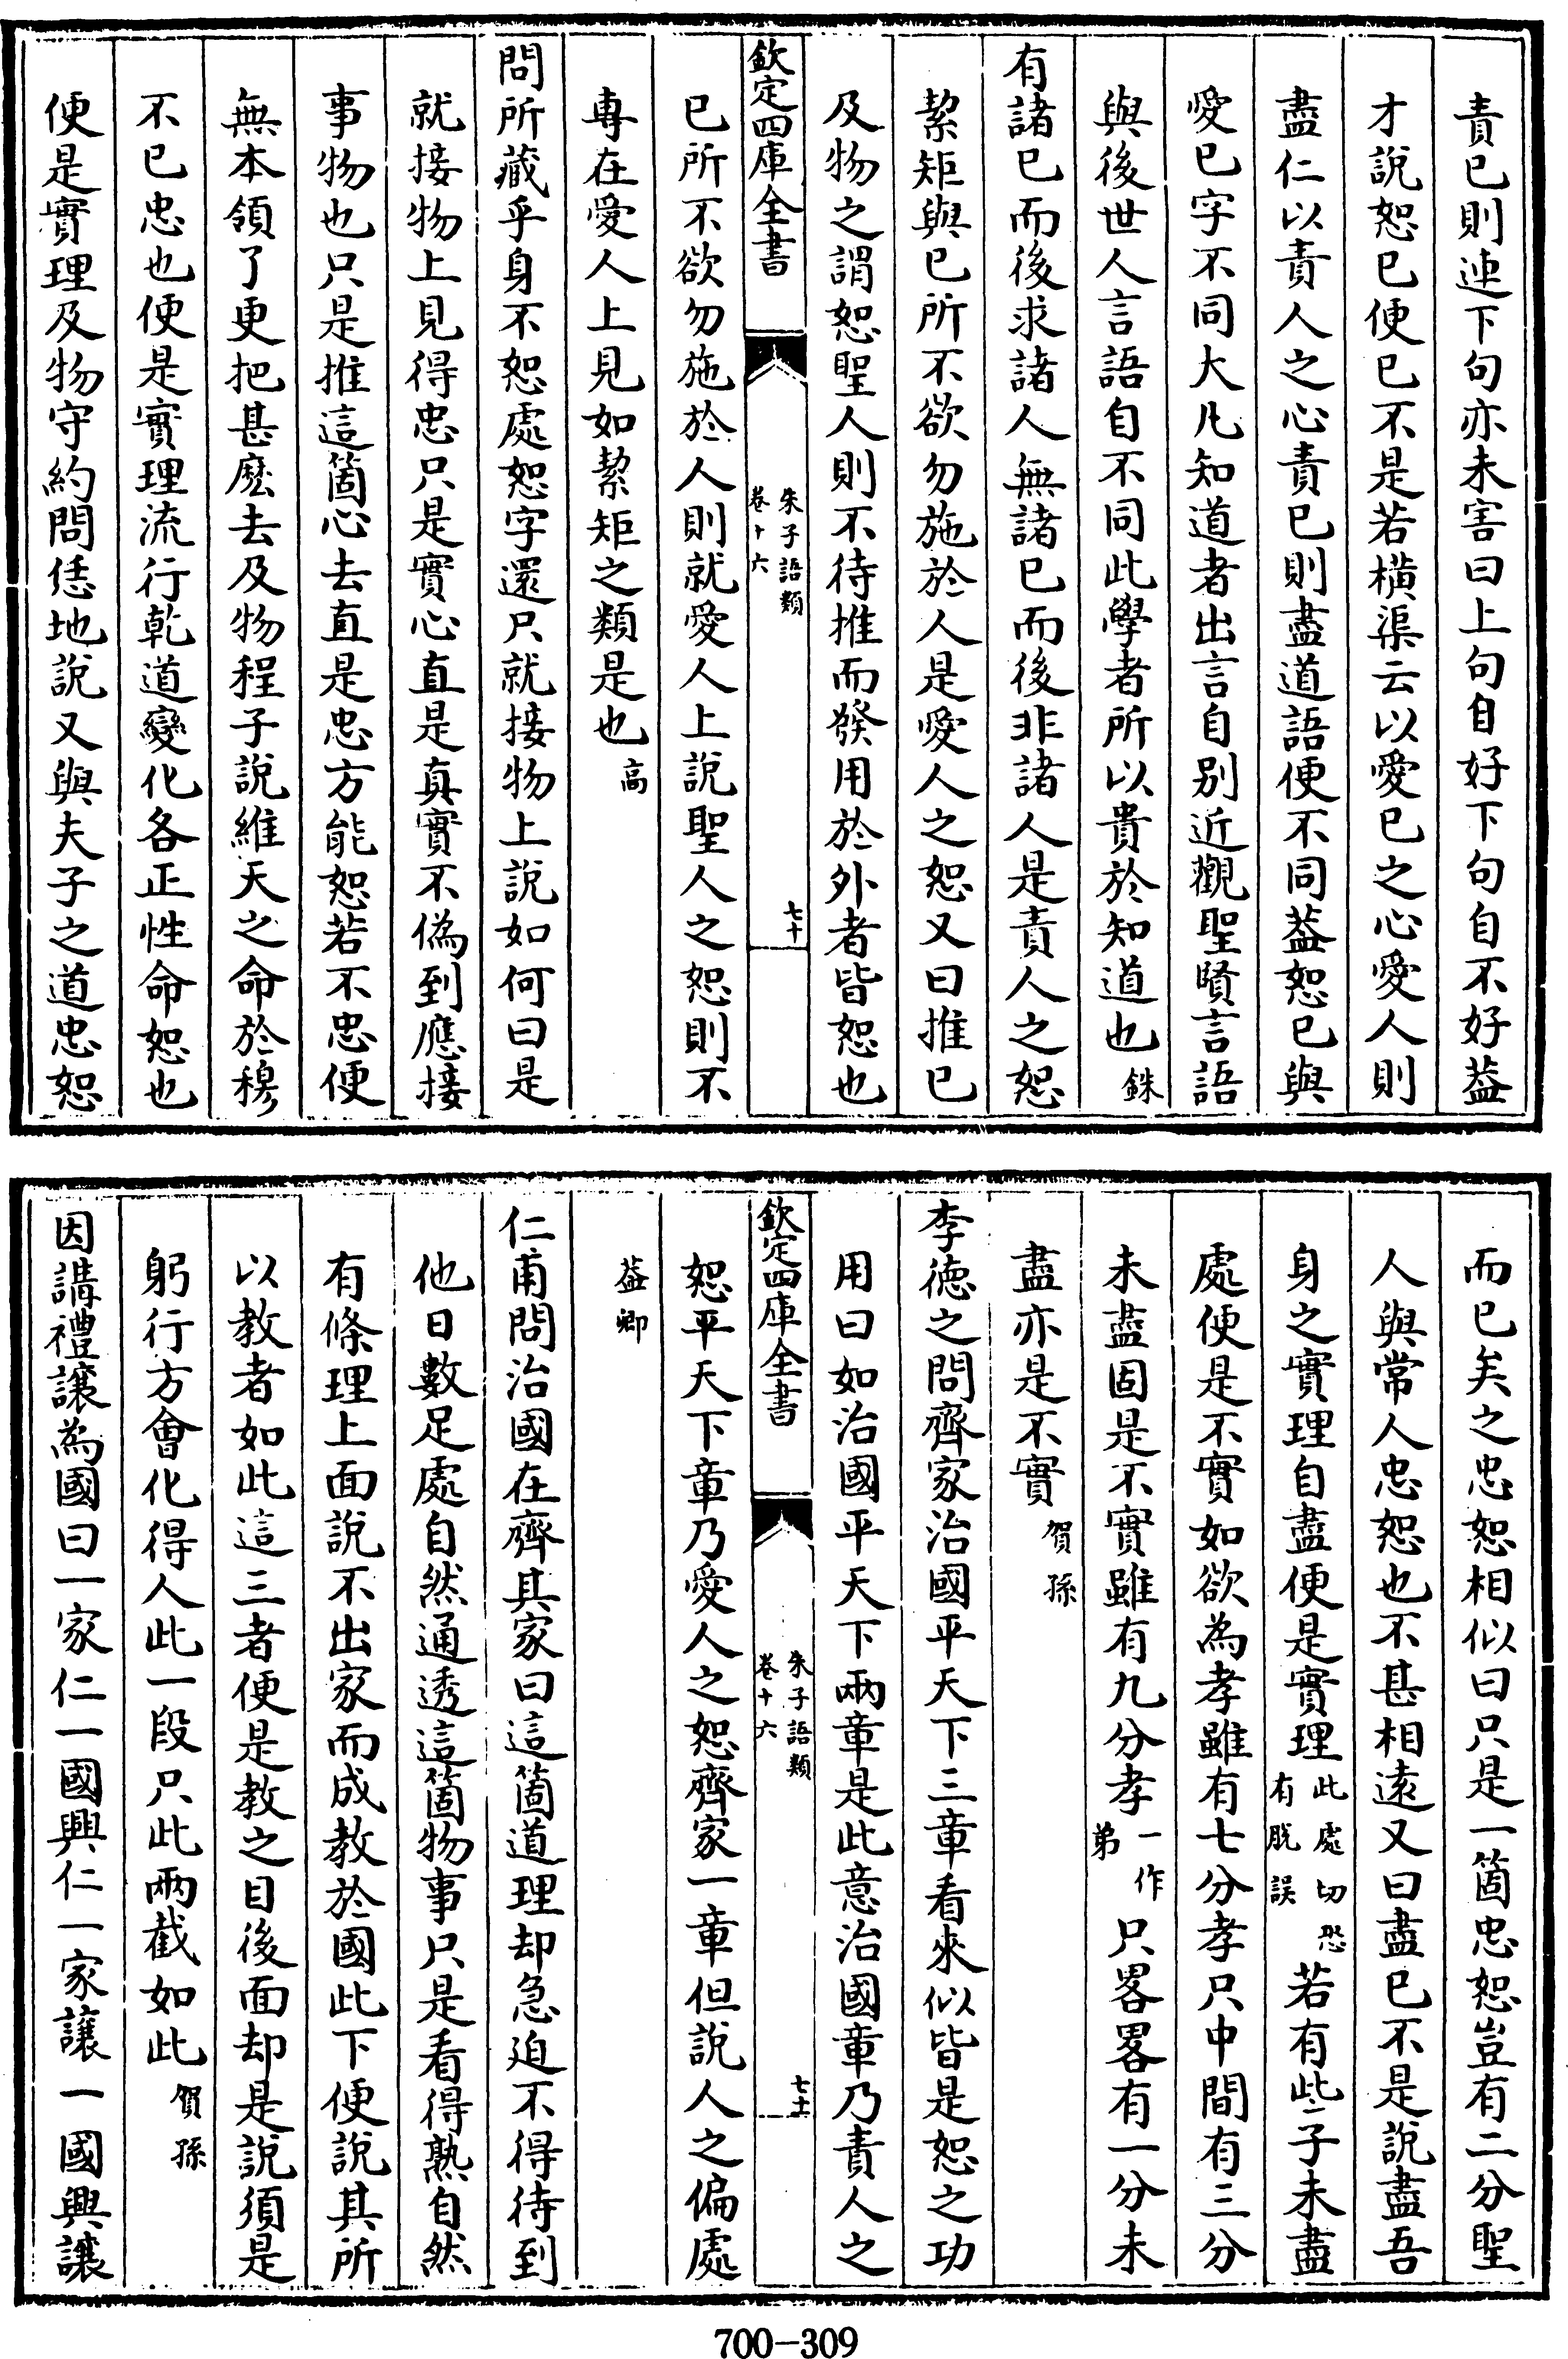 責已則連下句亦未害曰上句自好下句自不好葢
才說恕已便已不是若橫渠云以愛已之心愛人則
盡仁以責人之心責已則盡道語便不同葢恕已與
愛已字不同大凡知道者出言自别近觀聖賢言語
與後世人言語自不同此學者所以貴於知道也銖
有諸已而後求諸人無諸已而後非諸人是責人之恕
絜矩與已所不欲勿施於人是愛人之恕又曰推已
及物之謂恕聖人則不待推而發用於外者皆恕也
欽定四庫全書
朱子語類
卷十六
七十
已所不欲勿施於人則就愛人上說聖人之恕則不
專在愛人上見如絜矩之類是也高
問所藏乎身不恕處恕字還只就接物上說如何曰是
就接物上見得忠只是實心直是真實不偽到應接
事物也只是推這箇心去直是忠方能恕若不忠便
無本領了更把甚麽去及物程子說維天之命於穆
不已忠也便是實理流行乾道變化各正性命恕也
便是實理及物守約問恁地說又與夫子之道忠恕
而已矣之忠恕相似曰只是一箇忠恕豈有二分聖
人與常人忠恕也不甚相遠又曰盡已不是說盡吾
身之實理自盡便是實理此處切恐有脱誤若有些子未盡
處便是不實如欲為孝雖有七分孝只中間有三分
未盡固是不實雖有九分孝一作弟只畧畧有一分未
盡亦是不實賀孫
李徳之問齊家治國平天下三章看來似皆是恕之功
用曰如治國平天下兩章是此意治國章乃責人之
欽定四庫全書
朱子語類
卷十六
七十一
恕平天下章乃愛人之恕齊家一章但說人之偏處
葢卿
仁甫問治國在齊其家曰這箇道理却急迫不得待到
他日數足處自然通透這箇物事只是看得熟自然
有條理上面說不出家而成教於國此下便說其所
以教者如此這三者便是教之目後面却是說須是
躬行方會化得人此一段只此兩截如此賀孫
因講禮讓為國曰一家仁一國興仁一家讓一國興讓
700-309